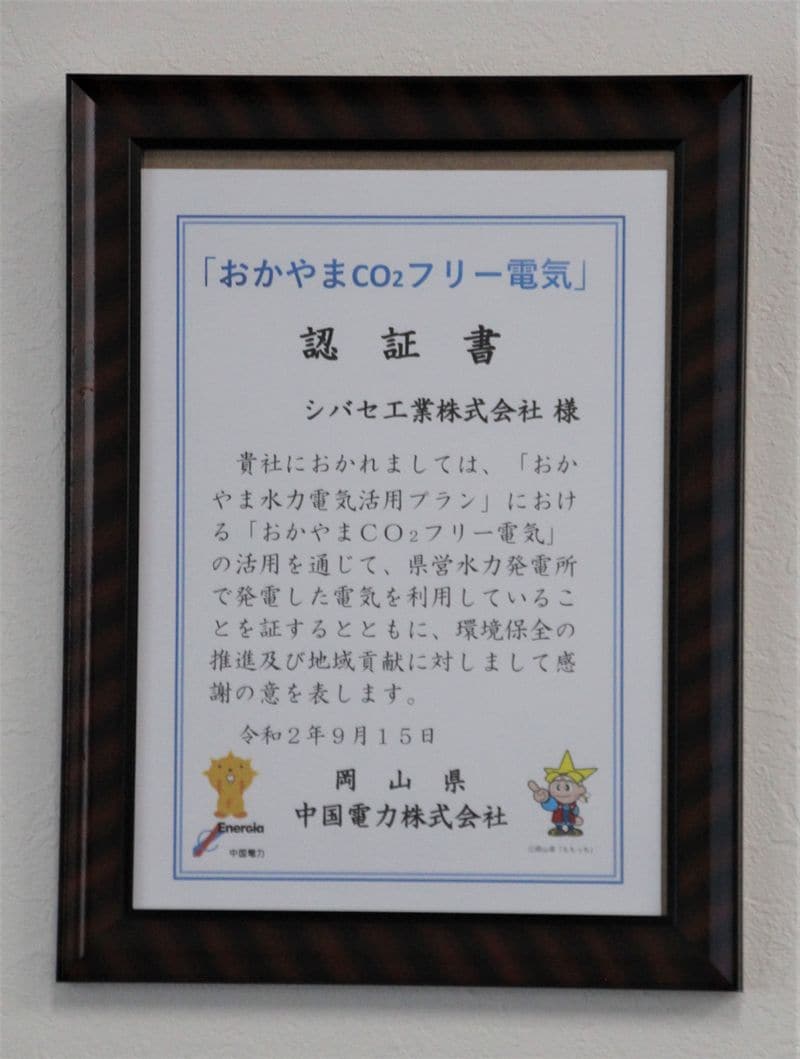 「おかやまCO₂フリー電気」
認証書
シバセ工業株式会社 様
貴社におかれましては、「おか
やま水力電気活用プラン」におけ
る「おかやまＣＯ₂フリー電気」
の活用を通じて、県営水力発電所
で発電した電気を利用しているこ
とを証するとともに、環境保全の
推進及び地域貢献に対しまして感
謝の意を表します。
令和２年９月１５日
岡山県
中国電力株式会社
Energia
中国電力
©岡山県「ももっち」